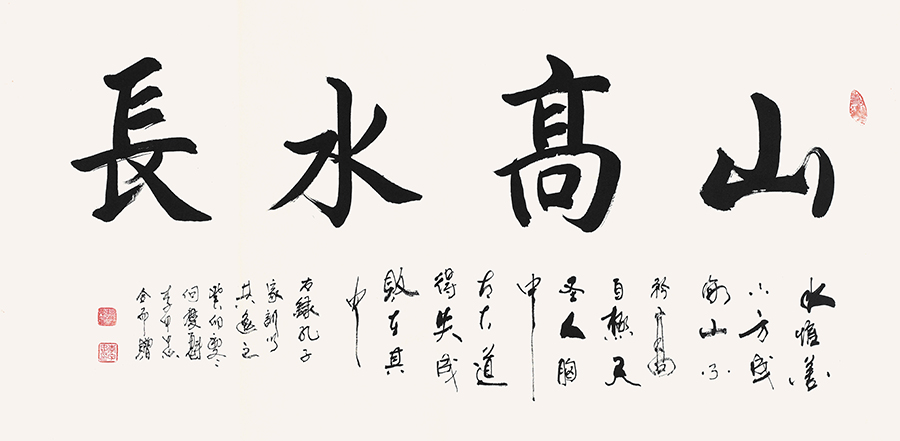 山髙水長
水惟善
下方成
海山不
矜高
自極天
圣人胸
中
有大道
得失成
敗在其
中
右録孔子
家訓以
共勉之
癸卯夏